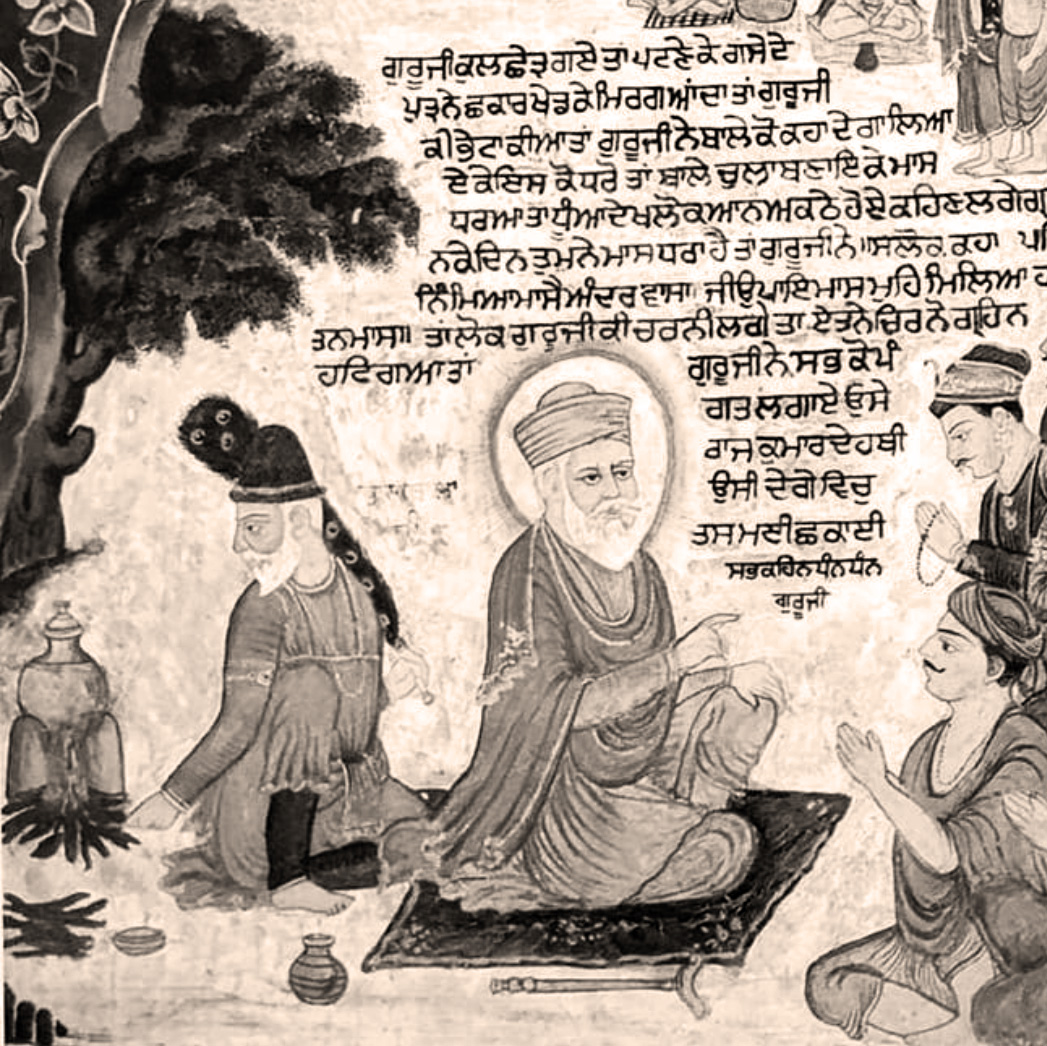 ਗੁਰੂ ਜੀ ਕੁਲਛੇਤ੍ਰ ਗਏ ਤਾਂ ਪਟਣੇ ਕੇ ਰਾਜੇ ਦੇ
ਪੁਤ੍ਰ ਨੇ ਛਕਾਰ ਖੇਡ ਕੇ ਮਿਰਗ ਆਂਦਾ ਤਾਂ ਗੁਰੂ ਜੀ
ਕੀ ਭੇਟਾ ਕੀਆ ਤਾਂ ਗੁਰੂ ਜੀ ਨੇ ਬਾਲੇ ਕੋ ਕਹਾ ਦੇਗਾ ਲਿਆ
ਏ ਕੇ ਇਸ ਕੋ ਧਰੋ ਤਾਂ ਬਾਲੇ ਚੁਲਾ ਬਣਾਇ ਕੇ ਮਾਸ
ਧਰਆ ਤਾਂ ਧੂੰਆ ਦੇਖ ਲੋਕ ਆਨ ਅਕਠੇ ਹੋਏ ਕਹਿਣ ਲਗੇ
ਨ ਕੇ ਦਿਨ ਤੁਮਨੇ ਮਾਸ ਧਰਾ ਹੈ ਤਾਂ ਗੁਰੂ ਜੀ ਨੇ ॥ ਸਲੋਕ ਕਹਾ
ਨਿੰਮਿਆ ਮਾਸੈ ਅੰਦਰ ਵਾਸਾ ਜੀਉ ਪਾਇ ਮਾਸ ਮੁਹਿ ਮਿਲਿਆ
ਤਨ ਮਾਸਾ॥ ਤਾਂ ਲੋਕ ਗੁਰੂ ਜੀ ਕੀ ਚਰਨੀ ਲਗੇ ਤਾ ਏਤਨੇ ਚਿਰ ਨੋ ਗ੍ਰਹਿਨ
ਹਟਿ ਗਆ ਤਾਂ
ਗੁਰੂ ਜੀ ਨੇ ਸਭ ਕੋ ਪੰ
ਗਤ ਲਗਾਏ ਓਸੇ
ਰਾਜ ਕੁਮਾਰ ਦੇ ਹਥੀ
ਉਸੀ ਦੇਗੇ ਵਿਚੁ
ਤਸਮਈ ਛਕਾਈ
ਸਭ ਕਹਿਨ ਧੰਨ ਧੰਨ
ਗੁਰੂ ਜੀ